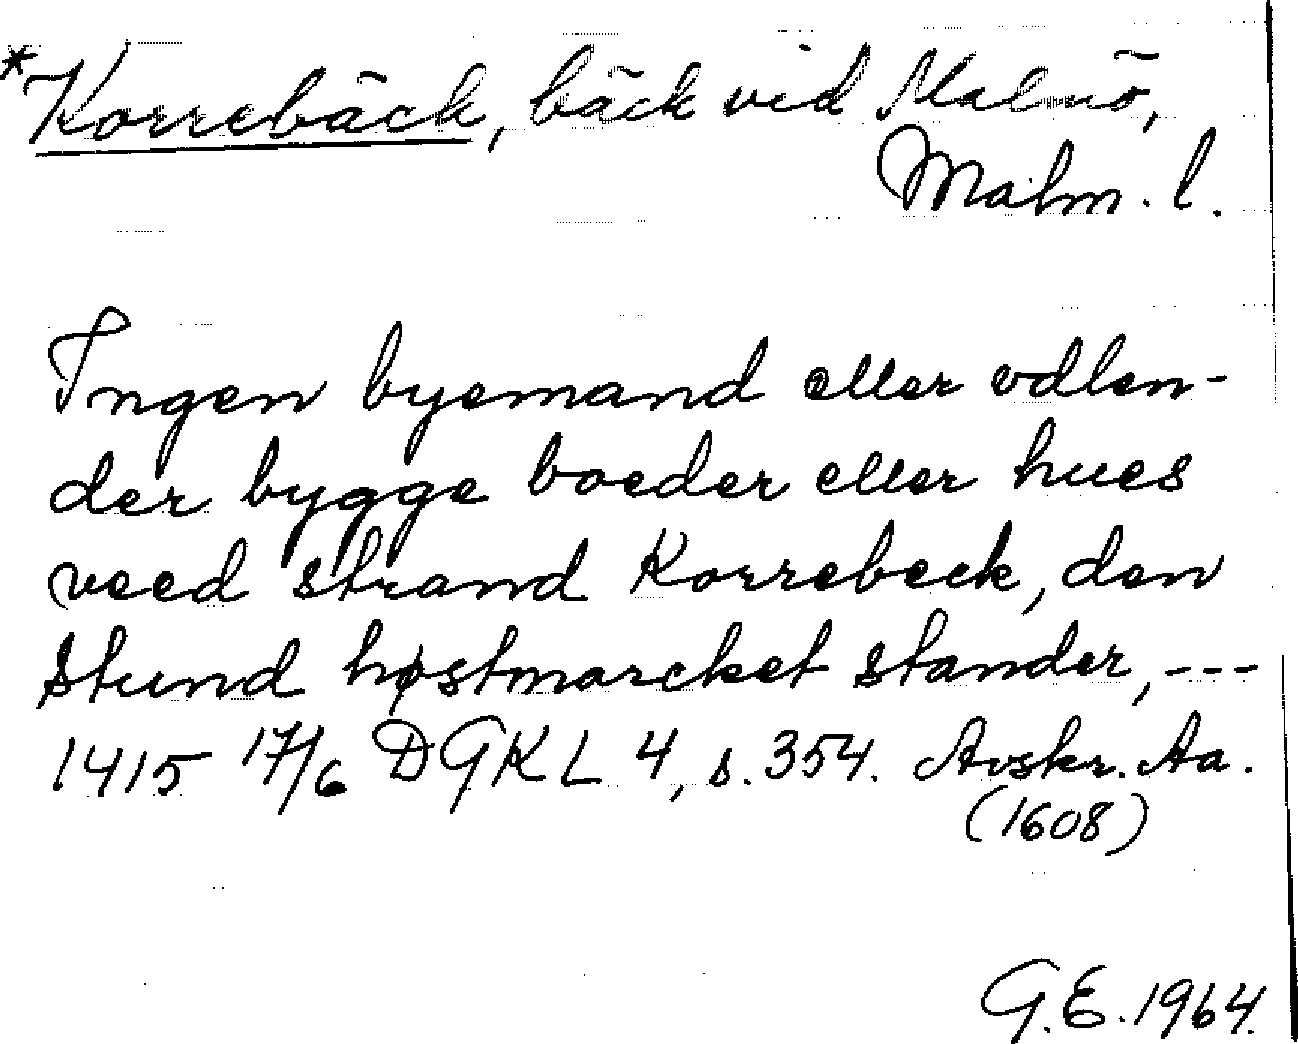 *Korrebäck, bäck vid Malmö,
Malm. l.
Ingen byemand eller vdlen-
der bygge boeder eller hues
veed strand Korrebeck, den
stund høstmarcket stander, ---
1415 17/6 DGKL 4, s. 354. Avskr. Aa.
(1608)
G.E. 1964.